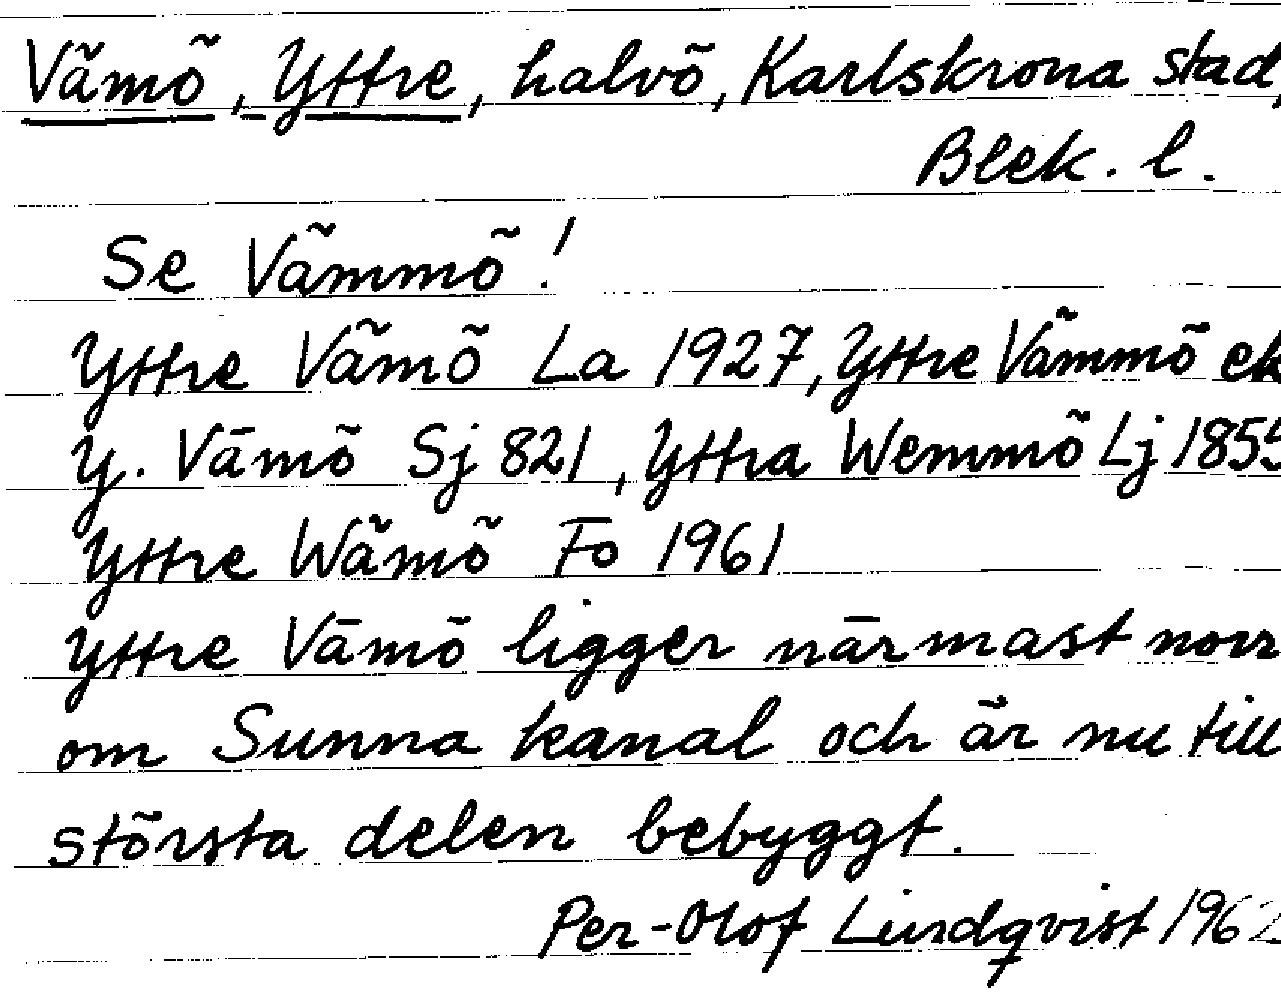 Vämö, Yttre, halvö, Karlskrona stad,
Blek. l.
Se Vämmö!
Yttre Vämö La 1927, Yttre Vämmö ek
Y. Vämö Sj 821, Yttra Wemmö Lj 1855
Yttre Wämö Fo 1961
Yttre Vämö ligger närmast norr
om Sunna kanal och är nu till
största delen bebyggt.
Per-Olof Lindqvist 1962